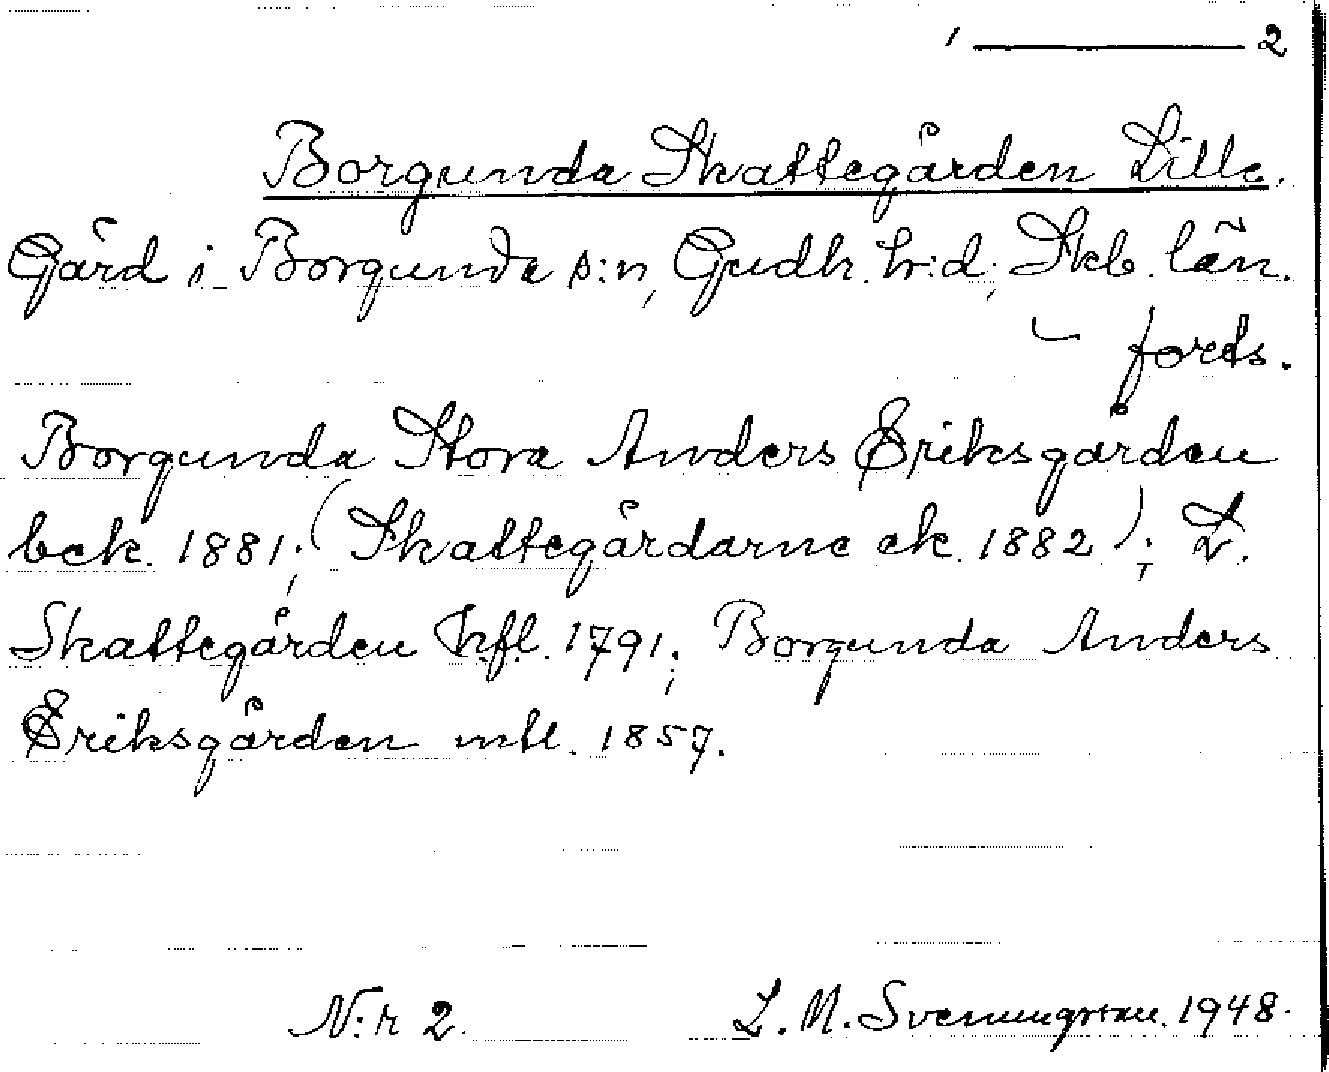 1 ——— 2
Borgunda Skattegården Lille.
Gård i Borgunda s:n, Gudh. hr:d, Skb. län.
– fords.
Borgunda Stora Anders Eriksgården
bek. 1881; (Skattegårdarne ek. 1882); L.
Skattegården hfl. 1791; Borgunda Anders
Eriksgården mtl. 1857.
N:r 2. L. M. Svenungsson. 1948.